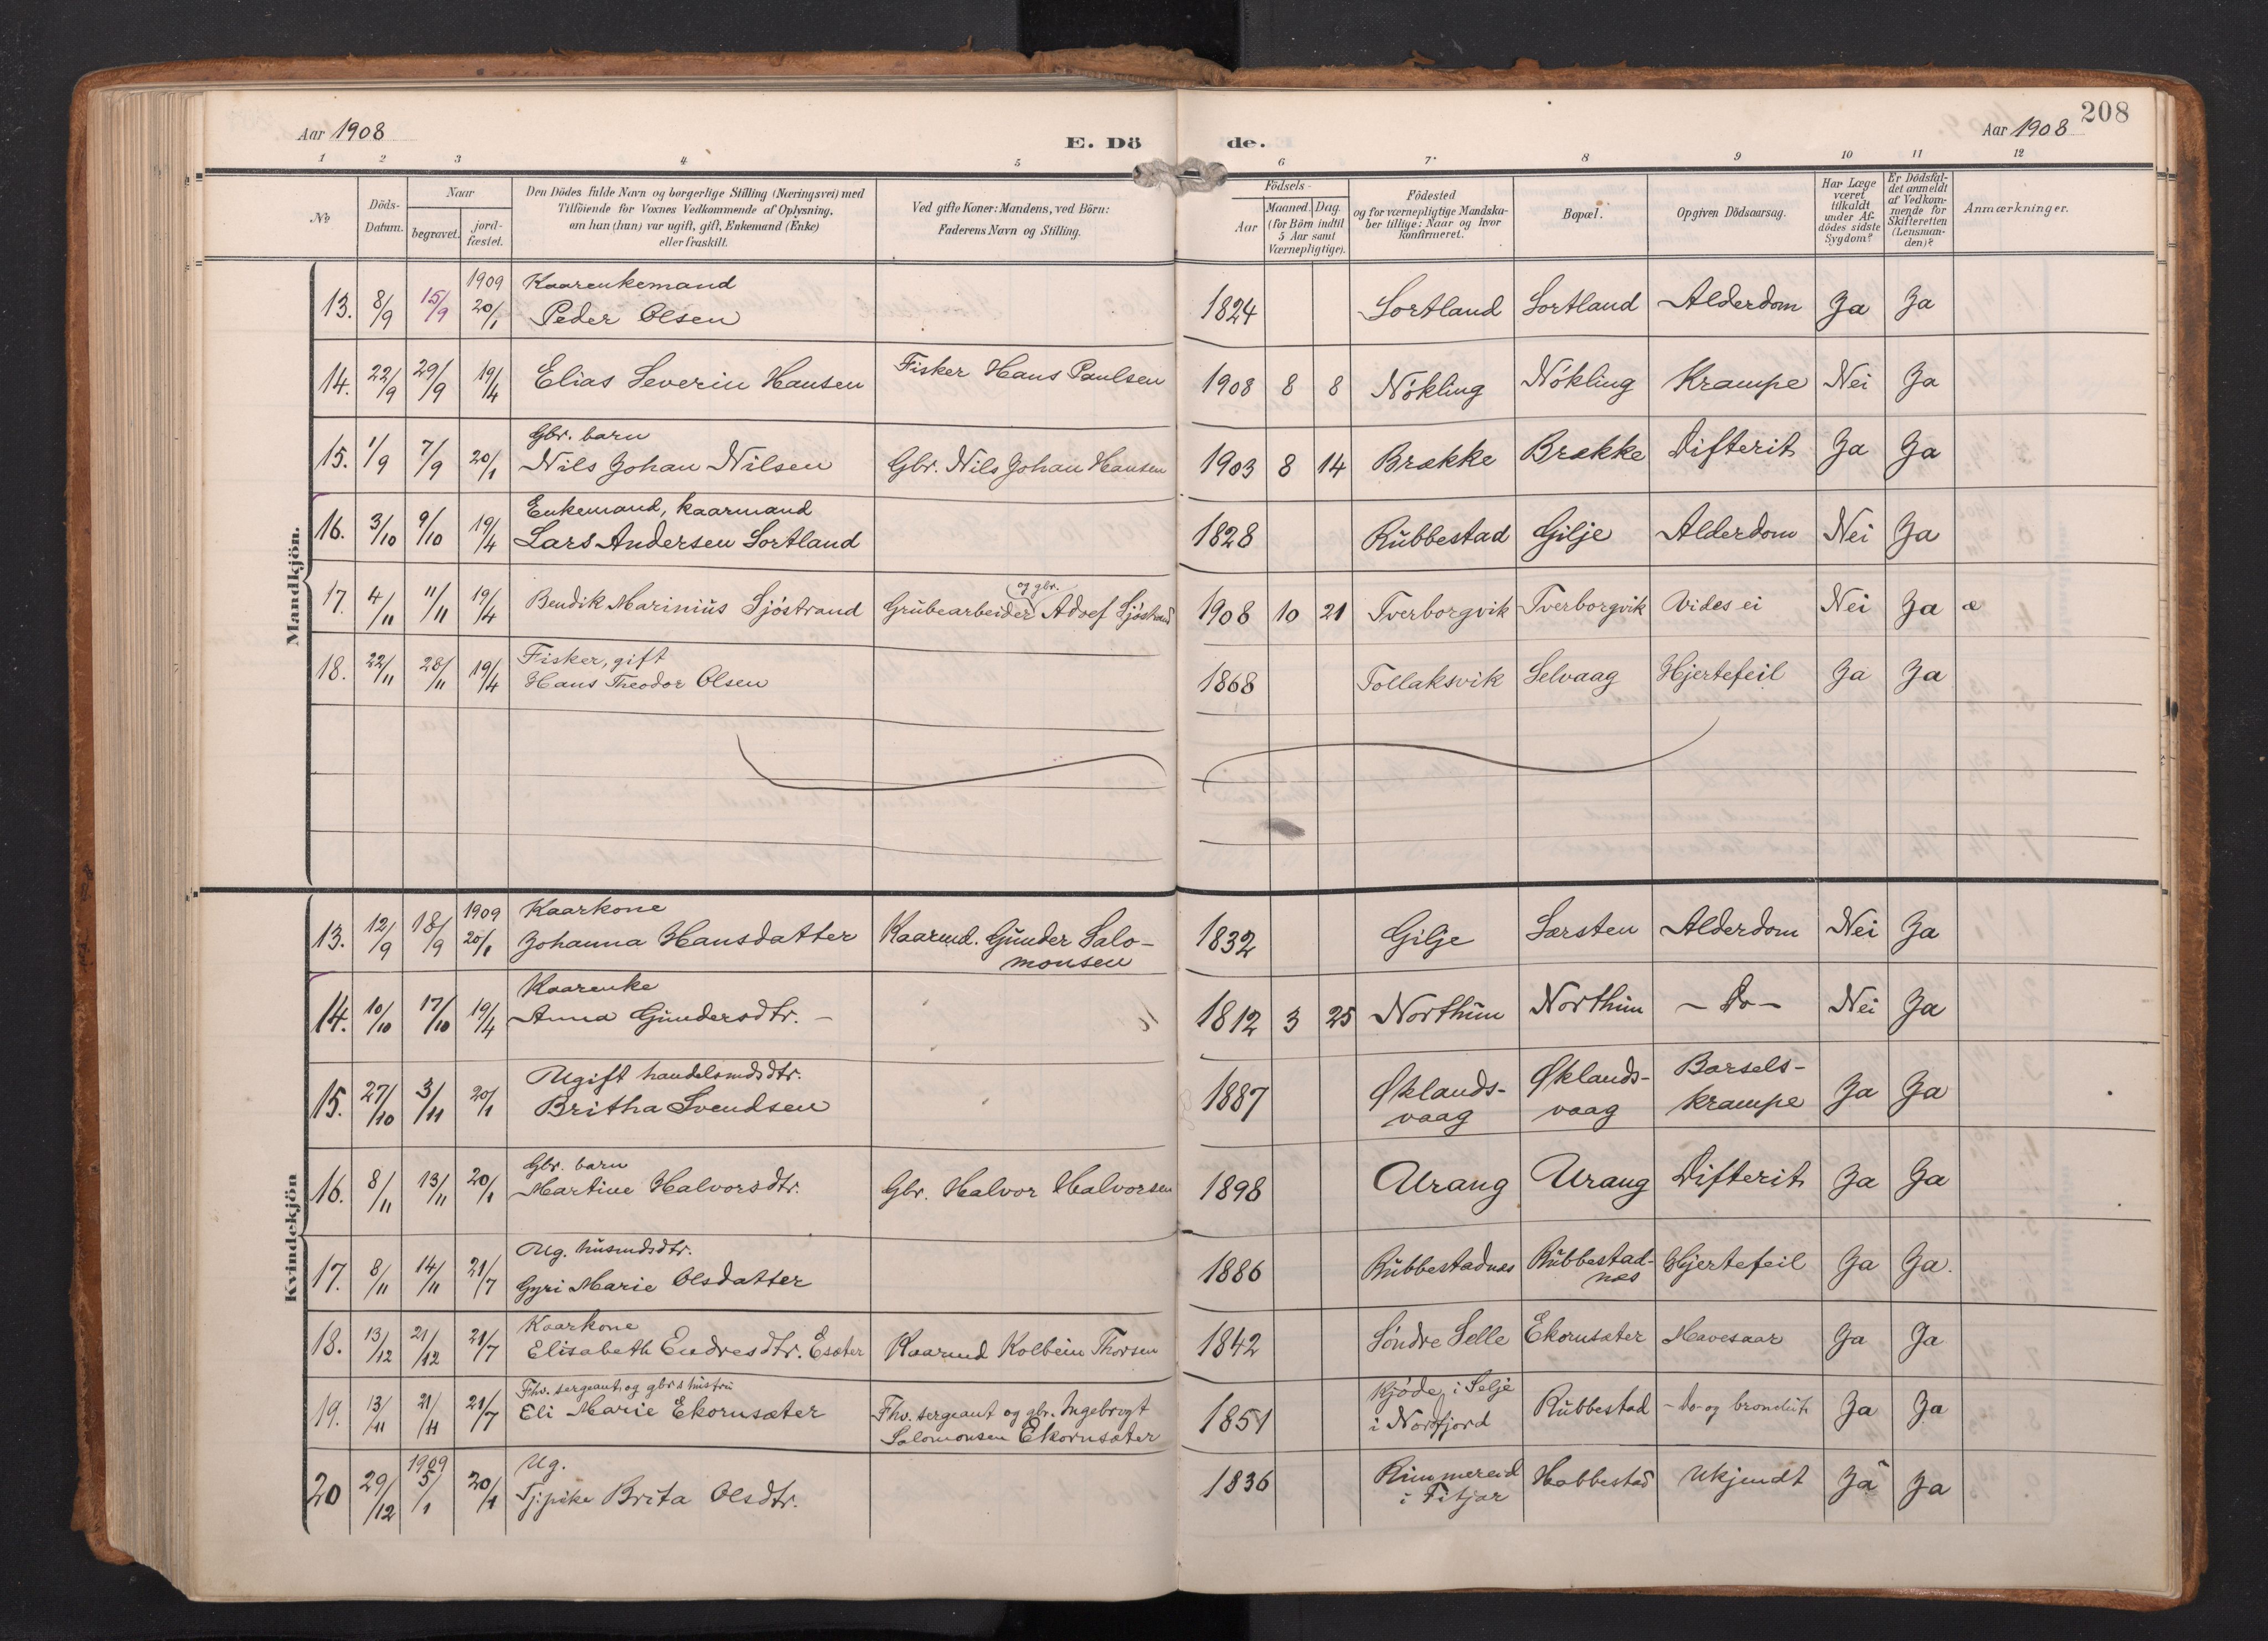 Aar 1908
E. Dö
de.
Aar 1908
208
1 2 3 4 5 6 7 8 9 10 11 12
No
Döds-
Datum.
Naar
begravet.
jord-
fæstet.
Den Dödes fulde Navn og borgerlige Stilling (Næringsvei) med
Tilföiende for Voxnes Vedkommende af Oplysning,
om han (hun) var ugift, gift, Enkemand (Enke)
eller fraskilt.
Ved gifte Koner: Mandens, ved Börn:
Faderens Navn og Stilling.
Födsels-
Aar
Maaned. Dag.
(for Börn indtil
5 Aar samt
Værnepligtige).
Födested
og for værnepligtige Mandska-
ber tillige: Naar og hvor
konfirmeret.
Bopæl.
Opgiven Dödsaarsag.
Har Læge
været
tilkaldt
under Af-
dödes sidste
Sygdom?
Er Dödsfal-
det anmeldt
af Vedkom-
mende for
Skifteretten
(Lensman-
den)?
Anmærkninger.
Mandkjön.
13. 8/9 15/9 1909 20/1 Kaarenkemand
Peder Olsen 1824 Sortland Sortland Alderdom Ja Ja
14. 22/9 29/9 19/4 Elias Severin Hansen Fisker Hans Paulsen 1908 8 8 Nökling Nökling Krampe Nei Ja
15. 1/9 7/9 20/1 Gbr. barn
Nils Johan Nilsen Gbr. Nils Johan Hansen 1903 8 14 Brække Brække Difterit Ja Ja
16. 3/10 9/10 19/4 Enkemand, kaarmand
Lars Andersen Sortland 1828 Rubbestad Gilje Alderdom Nei Ja
17. 4/11 11/11 19/4 Bendik Marinius Sjöstrand Grubearbeider og gbr. Adolf Sjöstrand 1908 10 21 Tverborgvik Tverborgvik Vides ei Nei Ja
18. 22/11 28/11 19/4 Fisker, gift
Hans Theodor Olsen 1868 Tollaksvik Selvaag Hjertefeil Ja Ja
Kvindekjön
13. 12/9 18/9 1909 20/1 Kaarkone
Johanna Hansdatter Kaarmd. Gunder Salo-
monsen 1832 Gilje Særsten Alderdom Nei Ja
14. 10/10 17/10 19/4 Kaarenke
Anna Gundersdtr. 1812 3 25 Northun Northun - Do - Nei Ja
15. 27/10 3/11 20/1 Ugift handelsmdsdtr.
Britha Svendsen 1887 Øklands-
vaag Øklands-
vaag Barsels-
krampe Ja Ja
16. 8/11 13/11 20/1 Gbr. barn
Martine Halvorsdtr. Gbr. Halvor Halvorsen 1898 Urang Urang Difterit Ja Ja
17. 8/11 14/11 21/7 Ug. husmdsdtr.
Gyri Marie Olsdatter 1886 Rubbestadnæs Rubbestad-
næs Hjertefeil Ja Ja.
18. 13/12 21/12 21/7 Kaarkone
Elisabeth Endresdtr. Esæter Kaarmd Kolbein Thorsen 1842 Söndre Selle Ekornsæter Mavesaar Ja Ja
19. 13/11 21/11 21/7 Fhv. sergeant og gbrs hustru
Eli Marie Ekornsæter Fhv. sergeant og gbr. Ingebrigt
Salomonsen Ekornsæter 1851 Kjöde i Selje
i Nordfjord Rubbestad - Do - og bronchit Ja Ja
20 29/12 1909 5/1 20/1 Ug.
Tj.pike Brita Olsdtr. 1836 Rimmereid
i Fitjar Habbestad Ukjendt Ja Ja